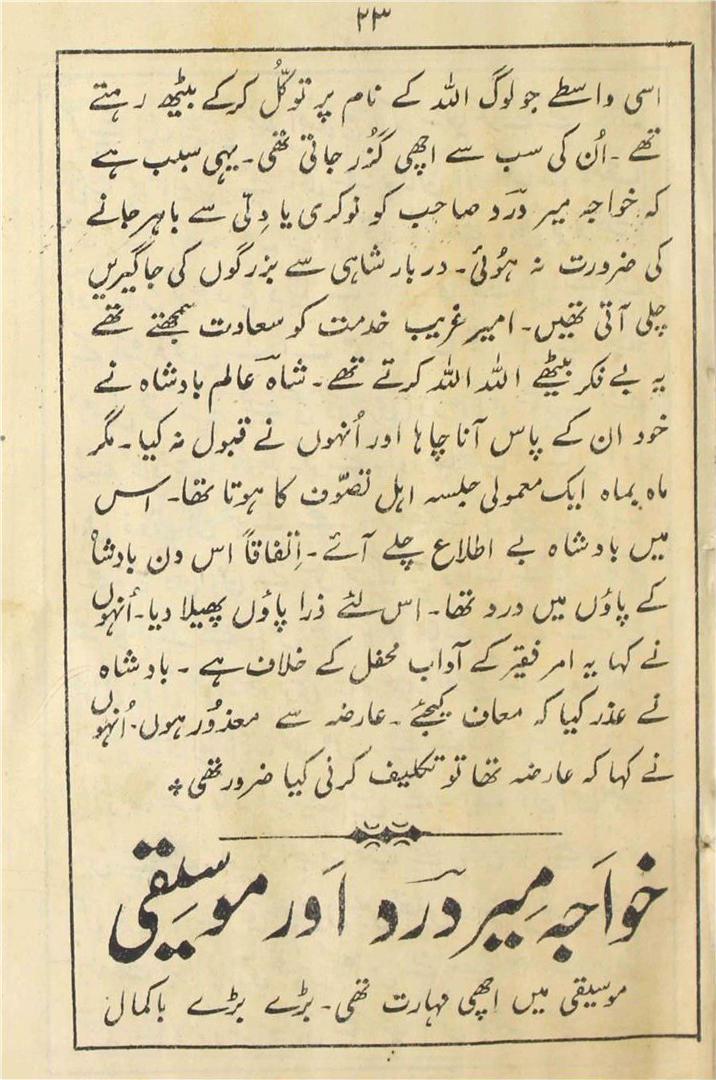 ۲۳
اسی واسطے جو لوگ اللہ کے نام پر توکّل کرکے بیٹھ رہتے
تھے ۔ اُن کی سب سے اچھی گزُر جاتی تھی۔ یہی سبب ہے
کہ خواجہ میر دردؔ صاحب کو نوکری یا دِلّی سے باہر جانے
کی ضرورت نہ ہُوئی۔ دربار شاہی سے بزرگوں کی جاگیریں
چلی آتی تھیں۔ امیر غریب خدمت کو سعادت سمجھتے تھے
یہ بے فکر بیٹھے اللہ اللہ کرتے تھے۔ شاہ عالم بادشاہ نے
خود ان کے پاس آنا چاہا اور اُنہوں نے قبول نہ کیا۔ مگر
ماہ بماہ ایک معمولی جلسہ اہل تصوّف کا ہوتا تھا۔ اس
میں بادشاہ بے اطلاع چلے آئے۔ اِتفاقاً اس دن بادشاہ
کے پاؤں میں درد تھا۔ اس لئے ذرا پاؤں پھیلا دیا۔ اُنہوں
نے کہا یہ امر فقیر کے آداب محفل کے خلاف ہے ۔ بادشاہ
نے عذر کیا کہ معاف کیجئے ۔ عارضہ سے معذوُر ہوں۔ اُنہوں
نے کہا کہ عارضہ تھا تو تکلیف کرنی کیا ضرور تھی٭
خواَجہ مِیر دردؔ اَور موسِیقی
موسیقی میں اچھی مہارت تھی۔ بڑے بڑے باکمال